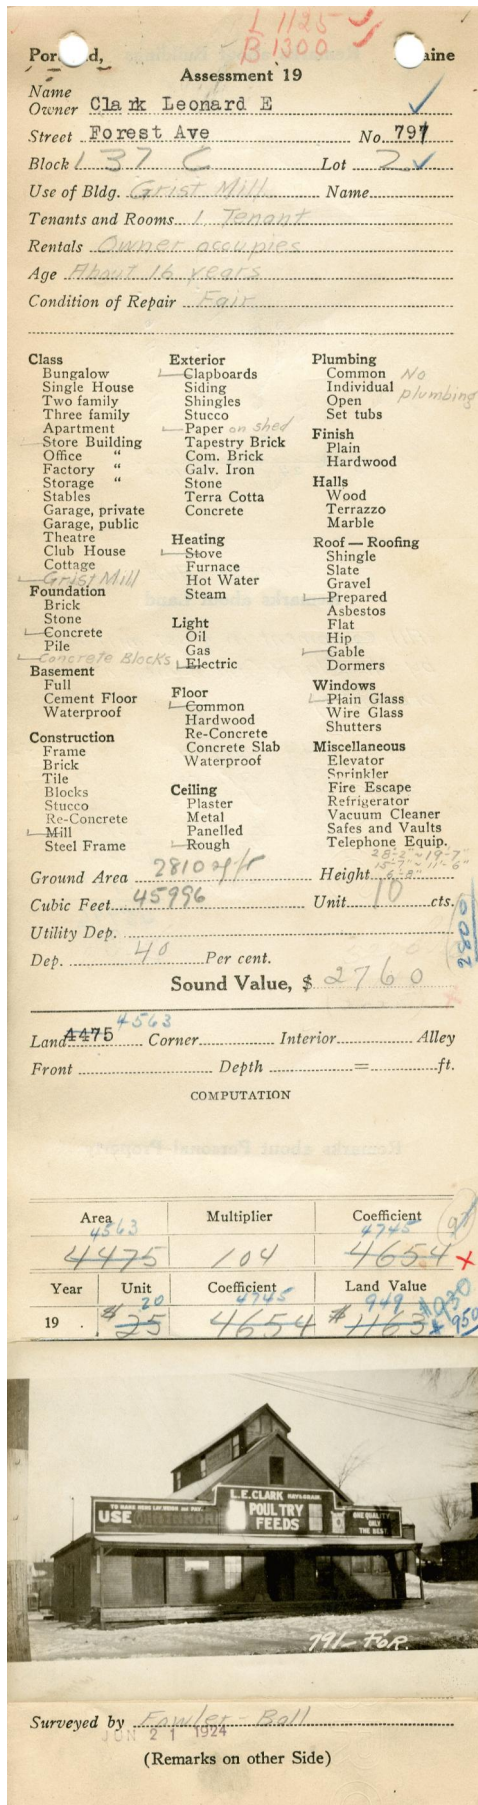 L 1125
B 1300
Portland, Maine
Assessment 19
Name
Owner Clark Leonard E
Street Forest Ave No. 791
Block 137 C Lot 2
Use of Bldg. Grist Mill Name
Tenants and Rooms 1 Tenant
Rentals Owner occupies
Age About 16 years
Condition of Repair Fair
Class
Bungalow
Single House
Two family
Three family
Apartment
Store Building
Office "
Factory "
Storage "
Stables
Garage, private
Garage, public
Theatre
Club House
Cottage
Grist Mill
Foundation
Brick
Stone
Concrete
Pile
Concrete Blocks
Basement
Full
Cement Floor
Waterproof
Construction
Frame
Brick
Tile
Blocks
Stucco
Re-Concrete
Mill
Steel Frame
Exterior
Clapboards
Siding
Shingles
Stucco
Paper on shed
Tapestry Brick
Com. Brick
Galv. Iron
Stone
Terra Cotta
Concrete
Heating
Stove
Furnace
Hot Water
Steam
Light
Oil
Gas
Electric
Floor
Common
Hardwood
Re-Concrete
Concrete Slab
Waterproof
Ceiling
Plaster
Metal
Panelled
Rough
Plumbing
Common No
Individual plumbing
Open
Set tubs
Finish
Plain
Hardwood
Halls
Wood
Terrazzo
Marble
Roof — Roofing
Shingle
Slate
Gravel
Prepared
Asbestos
Flat
Hip
Gable
Dormers
Windows
Plain Glass
Wire Glass
Shutters
Miscellaneous
Elevator
Sprinkler
Fire Escape
Refrigerator
Vacuum Cleaner
Safes and Vaults
Telephone Equip.
Ground Area 2810 Height
Cubic Feet 45996 Unit 10 cts.
Utility Dep.
Dep. 40 Per cent.
Sound Value, $ 2760
4563
Land 4475 Corner Interior Alley
Front Depth = ft.
COMPUTATION
Area Multiplier Coefficient
4563 4745
4475 104 4654
Year Unit Coefficient Land Value
20 4745 949 $930
19 . $25 4654 $1163 950
L.E. CLARK HAY & GRAIN
POULTRY
FEEDS
TO MAKE HENS LAY, WEIGH and PAY.
USE
ONE QUALITY
ONLY
THE BEST
791- FOR.
Surveyed by Fowler - Ball
JUN 21 1924
(Remarks on other Side)